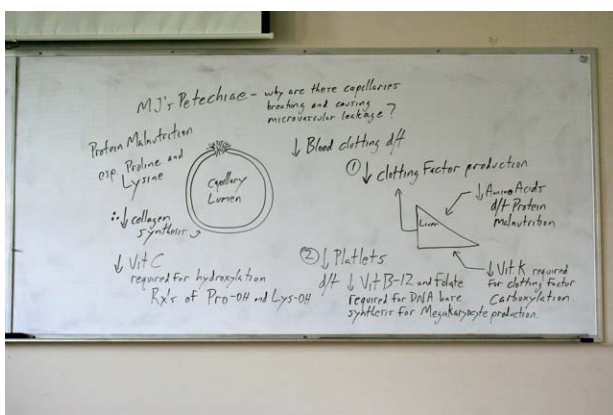 MJ's Petechiae - why are these capillaries
breaking and causing
microvascular leakage?
Protein Malnutrition
esp. Proline and
Lysine
∴ ↓ collagen
synthesis
↓ Vit C
required for hydroxylation
Rx's of Pro-OH and Lys-OH
Capillary
Lumen
↓ Blood clotting d/t
① ↓ clotting Factor production
Liver
↓ Amino Acids
d/t Protein
Malnutrition
↓ Vit K required
for clotting factor
Carboxylation.
② ↓ Platlets
d/t ↓ Vit B-12 and Folate
required for DNA base
synthesis for Megakaryocyte production.